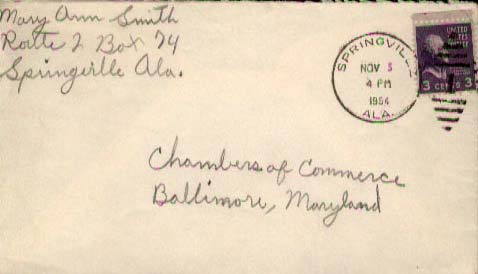 Mary Ann Smith
Route 2 Box 74
Springville Ala.
SPRINGVILLE
NOV 5
4 PM
1954
ALA.
UNITED
STATES
3 CENTS 3
Chambers of Commerce
Baltimore, Maryland